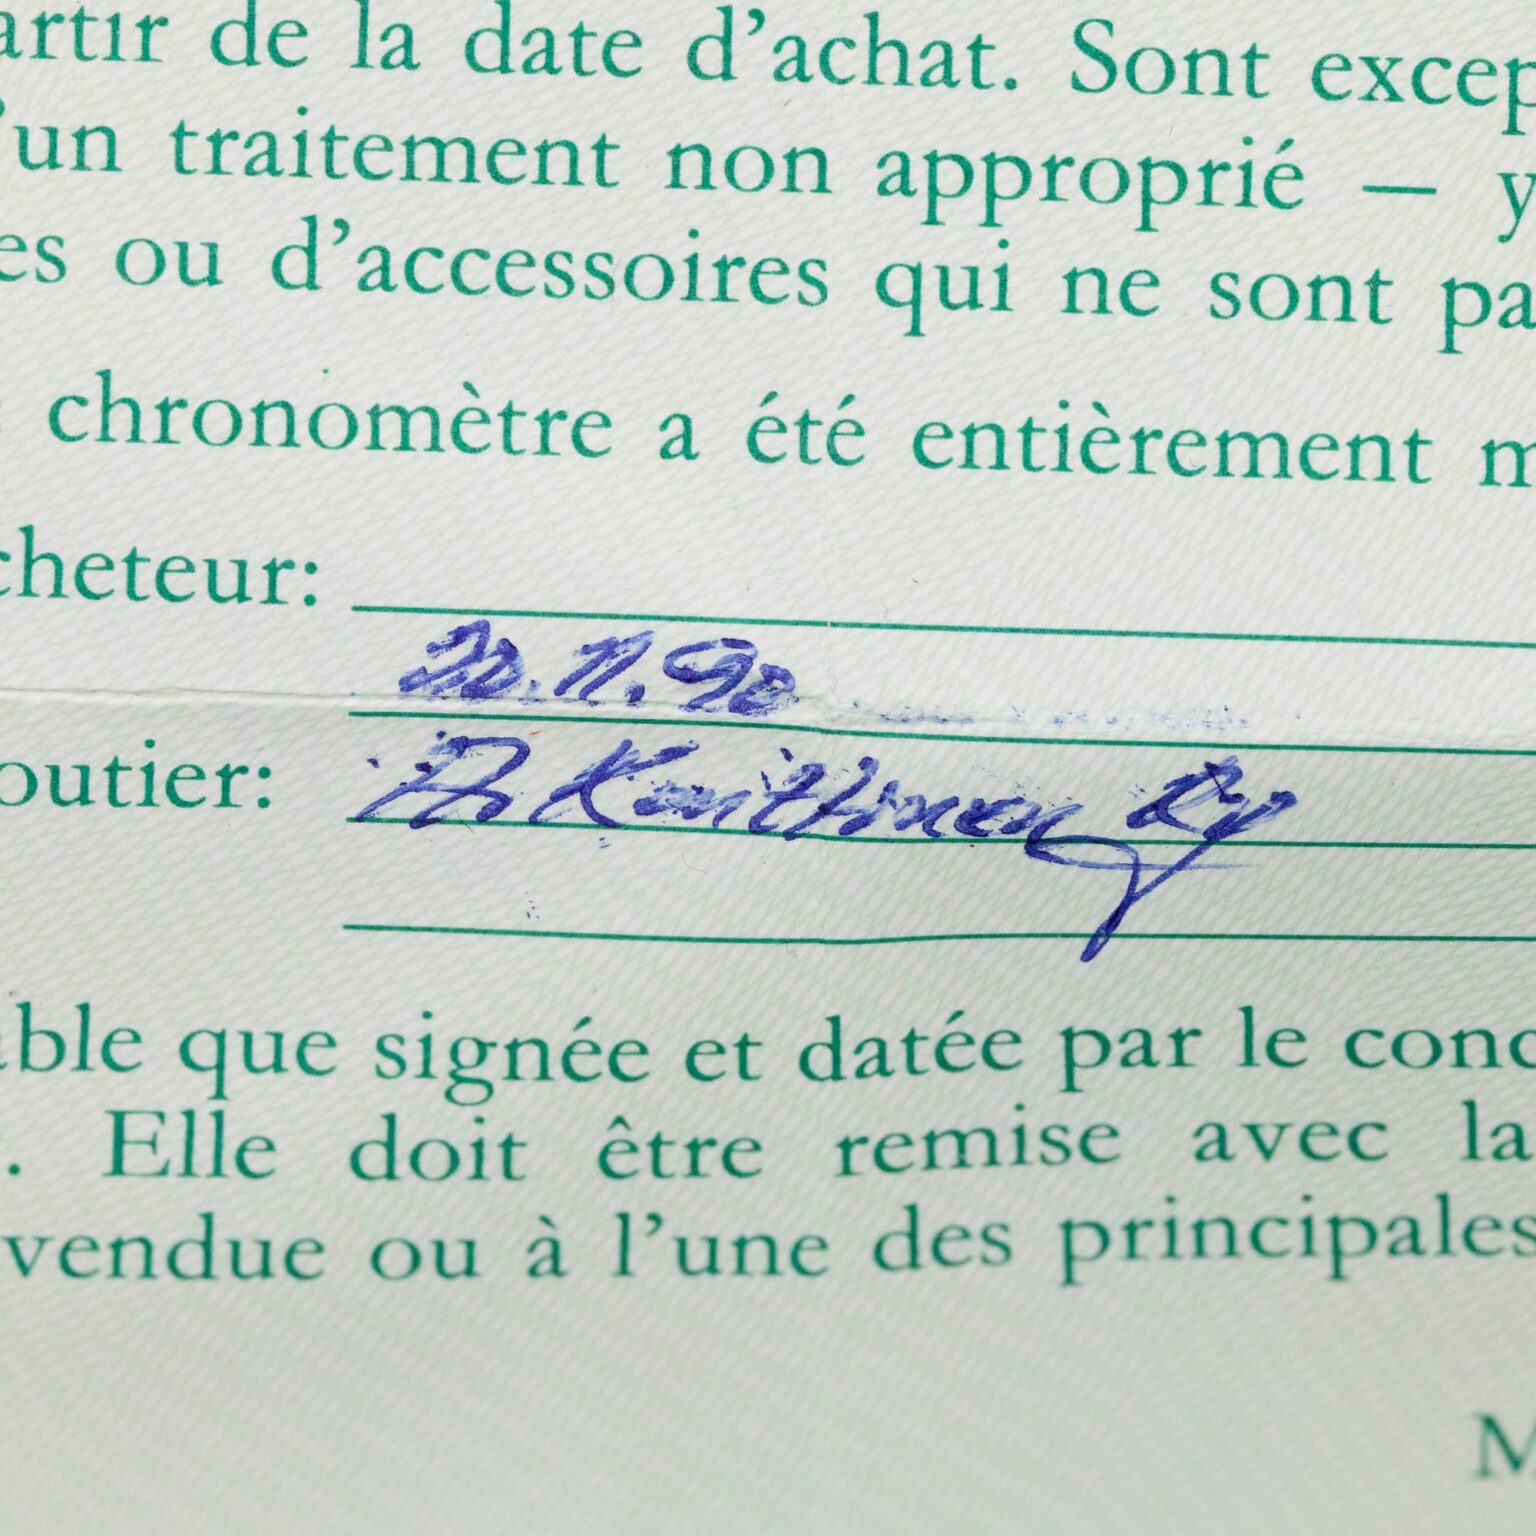 artir de la date d’achat. Sont excep
’un traitement non approprié — y
es ou d’accessoires qui ne sont pa
chronomètre a été entièrement m
cheteur:
20.11.90
outier: Kouttinen Ky
able que signée et datée par le conc
. Elle doit être remise avec la
vendue ou à l’une des principales
M